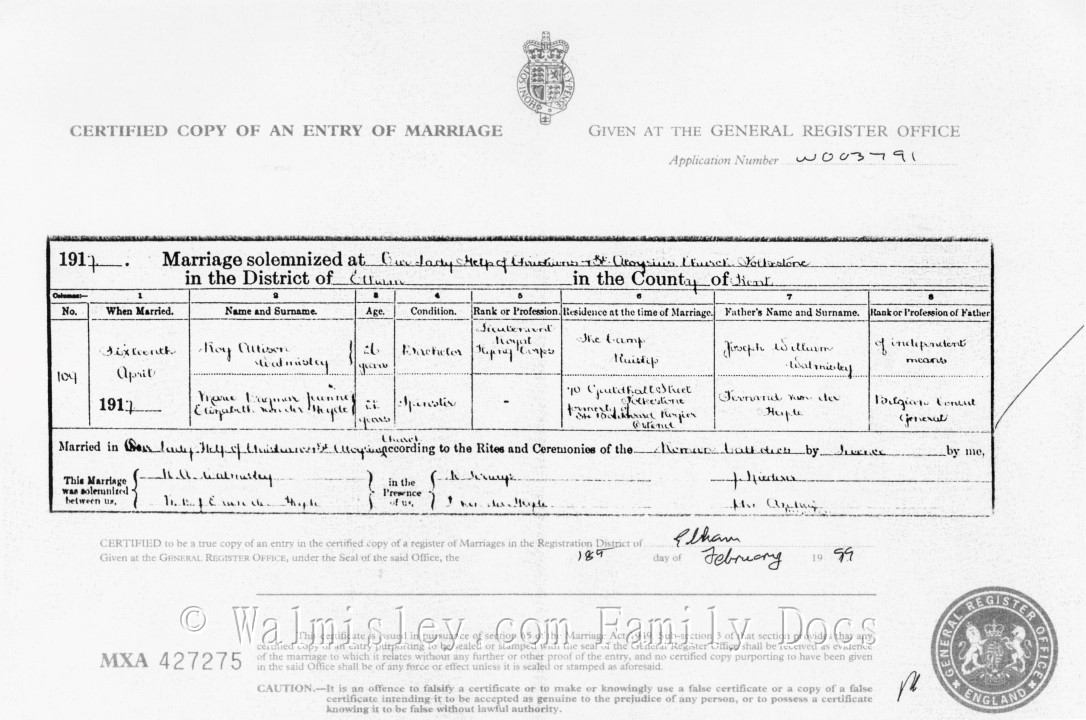 CERTIFIED COPY OF AN ENTRY OF MARRIAGE
GIVEN AT THE GENERAL REGISTER OFFICE
Application Number W003791
1917. Marriage solemnized at Our Lady Help of Christians & St Aloysius Church Folkestone
in the District of Elham in the County of Kent
Columns:— 1 2 3 4 5 6 7 8
No. When Married. Name and Surname. Age. Condition. Rank or Profession. Residence at the time of Marriage. Father's Name and Surname. Rank or Profession of Father
109
Sixteenth
April
1917
Roy Allison
Walmisley
26
years
Bachelor
Lieutenant
Royal
Flying Corps
The Camp
Ruislip
Joseph William
Walmisley
of independent
means
Marie Dagmar Jeanne
Elizabeth van der Heyde
years
Spinster
-
70 Guildhall Street
Folkestone
formerly
Ostend
Fernand van der
Heyde
Belgian Consul
General
Married in Our Lady Help of Christians & St Aloysius Church according to the Rites and Ceremonies of the Roman Catholics by licence by me,
This Marriage
was solemnized
between us,
R.A. Walmisley
van der Heyde
in the
Presence
of us,
van der Heyde
CERTIFIED to be a true copy of an entry in the certified copy of a register of Marriages in the Registration District of Elham
Given at the GENERAL REGISTER OFFICE, under the Seal of the said Office, the 18th day of February 1999
© Walmisley.com Family Docs
This certificate is issued in pursuance of section 65 of the Marriage Act 1949. Sub-section 3 of that section provides that any
certified copy of an entry purporting to be sealed or stamped with the seal of the General Register Office shall be received as evidence
of the marriage to which it relates without any further or other proof of the entry, and no certified copy purporting to have been given
in the said Office shall be of any force or effect unless it is sealed or stamped as aforesaid.
MXA 427275
CAUTION.—It is an offence to falsify a certificate or to make or knowingly use a false certificate or a copy of a false
certificate intending it to be accepted as genuine to the prejudice of any person, or to possess a certificate
knowing it to be false without lawful authority.
GENERAL REGISTER OFFICE
ENGLAND